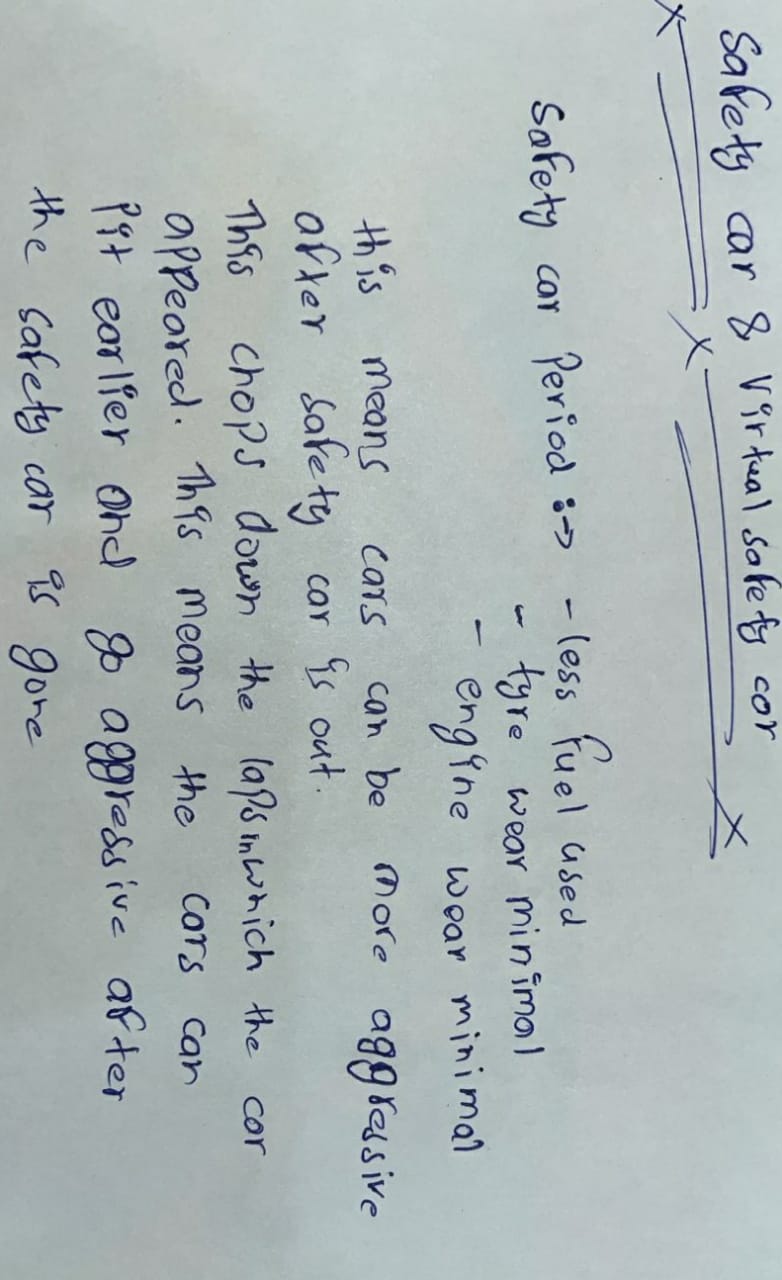 Safety car & Virtual safety car
Safety car Period :-> - less fuel used
- tyre wear minimal
- engine wear minimal
this means cars can be more aggressive
after safety car is out.
This chops down the laps in which the car
appeared. This means the cars can
Pit earlier and go aggressive after
the safety car is gone